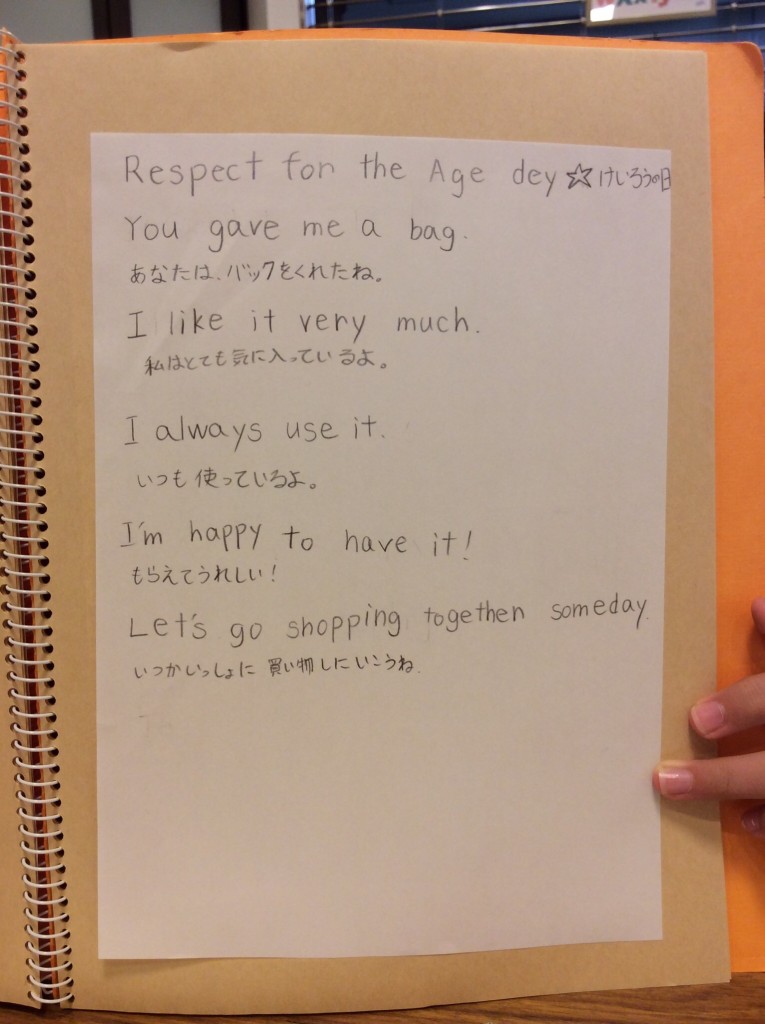 Respect for the Age dey ☆ けいろうの日
You gave me a bag.
あなたは、バックをくれたね。
I like it very much.
私はとても気に入っているよ。
I always use it.
いつも使っているよ。
I'm happy to have it!
もらえてうれしい!
Let's go shopping together someday.
いつかいっしょに買い物しにいこうね.